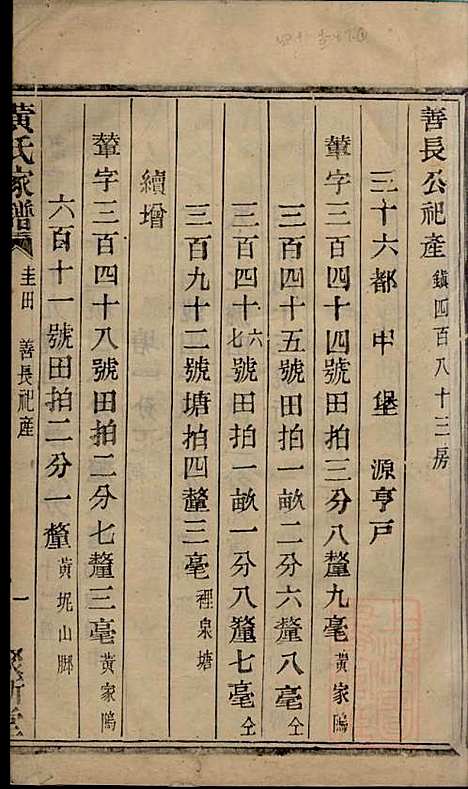 善長公祀產 鎮四百八十三房
三十六都 中堡 源亨戶
輋字三百四十四號田拍三分八釐九毫 黃家隖
三百四十五號田拍一畝二分六釐八毫 仝
三百四十六七號田拍一畝一分八釐七毫 仝
三百九十二號塘拍四釐三毫 裡泉塘
續增
輋字三百四十八號田拍二分七釐三毫 黃家隖
六百十一號田拍二分一釐 黃坭山脚
黃氏家譜 圭田 善長祀產 一